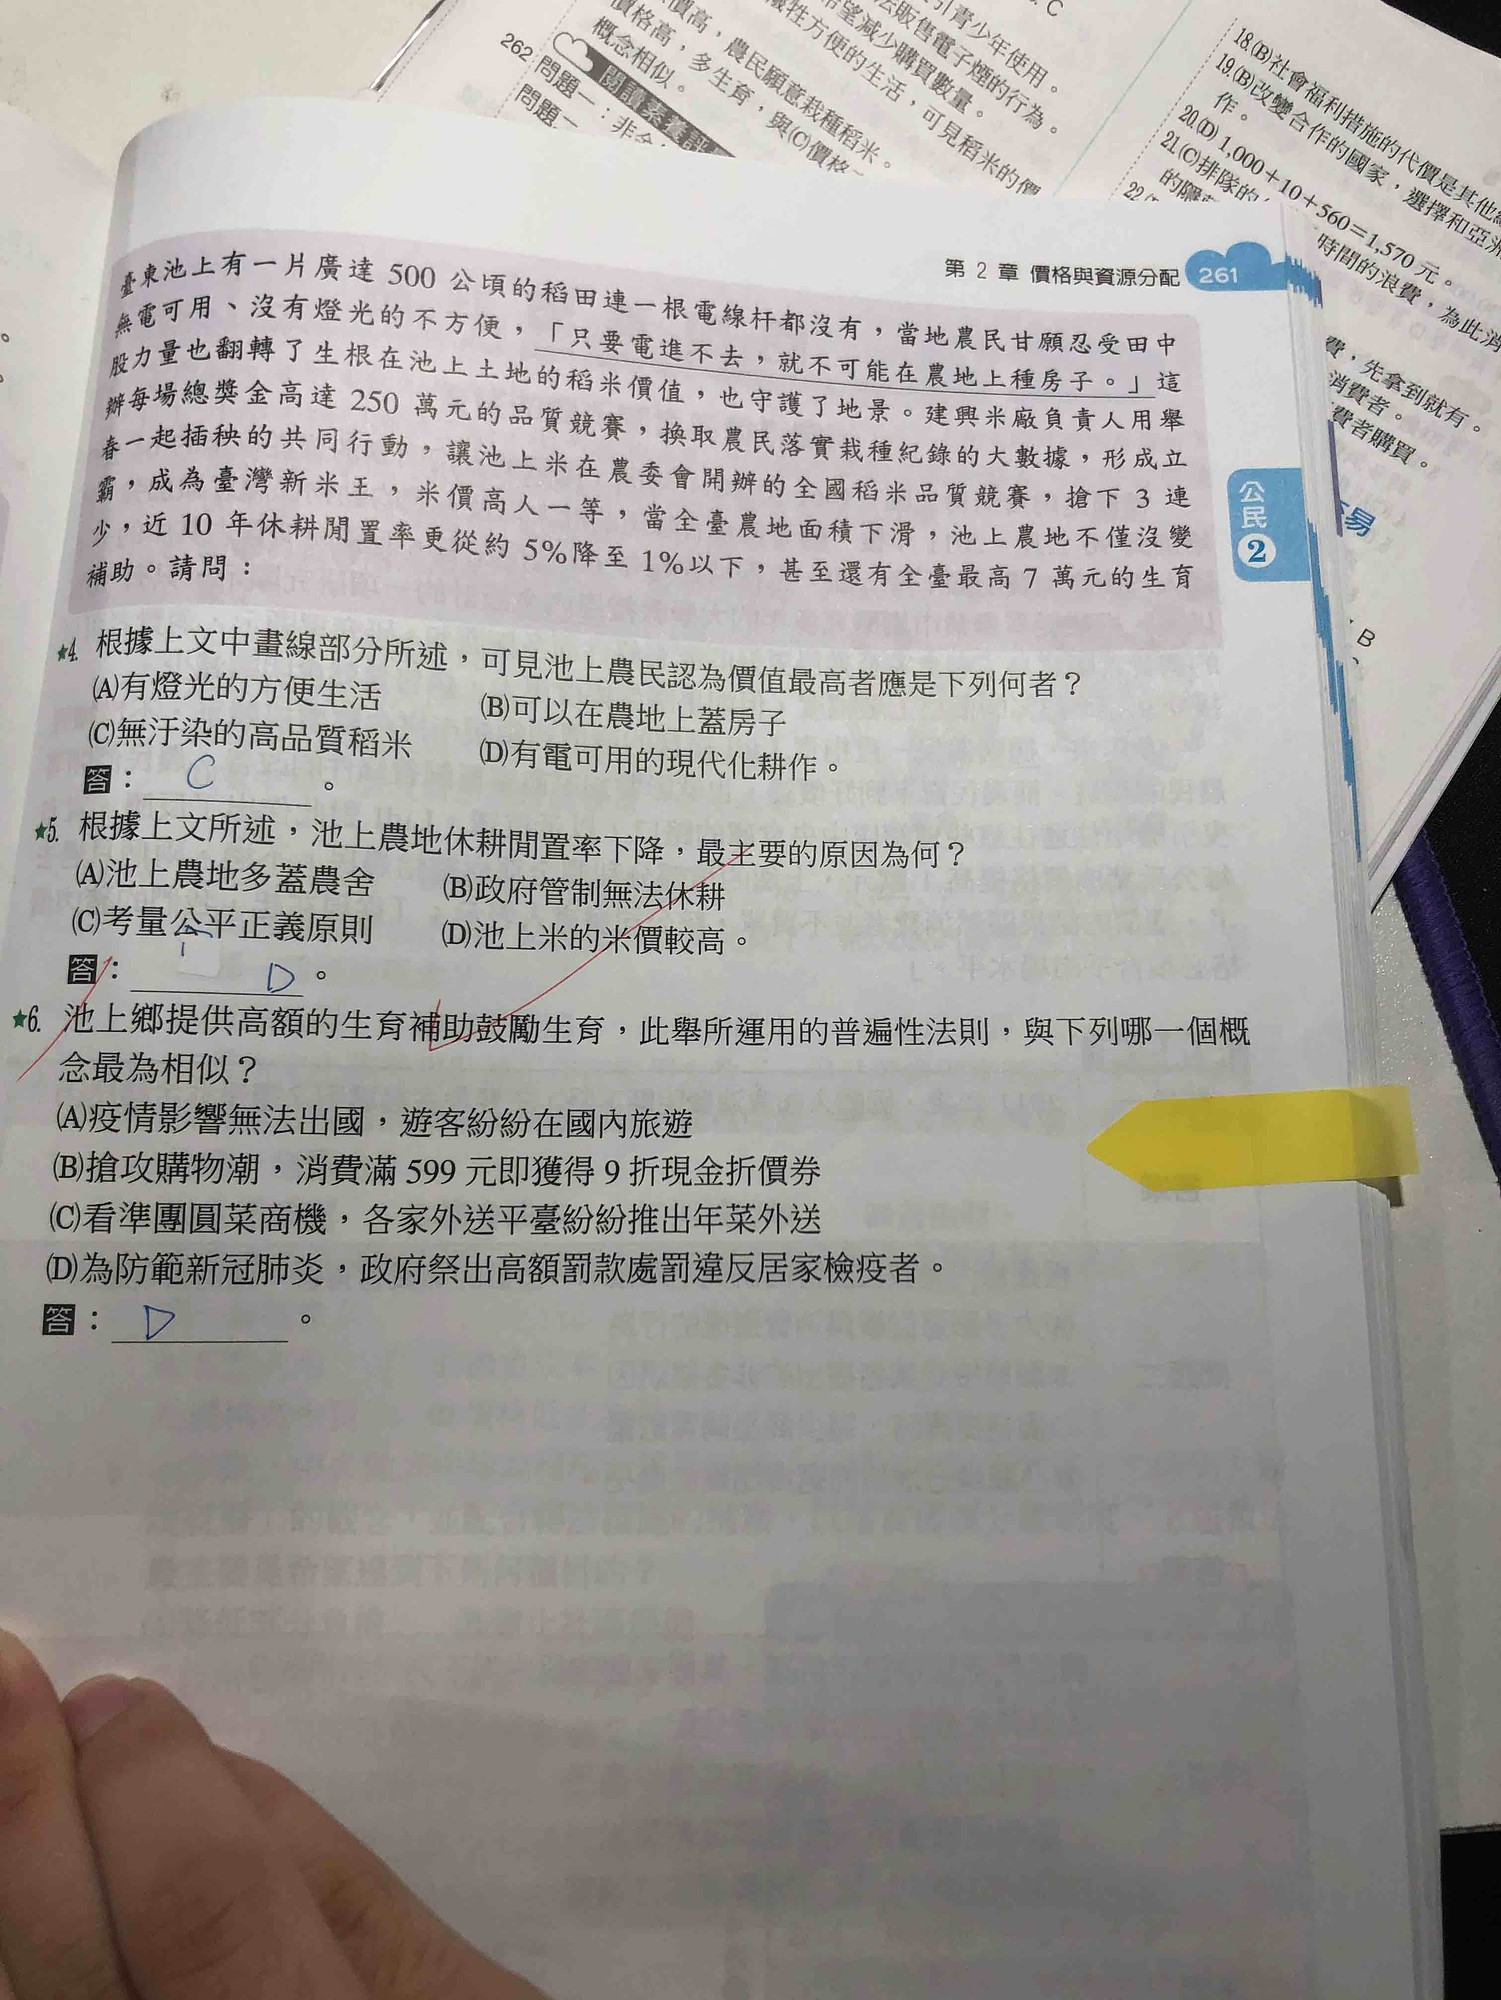 引青少年使用。
C
法販售電子煙的行為。
希望減少購買數量。
犧牲方便的生活,可見稻米的價
價高,農民願意栽種稻米。
價格高,多生育,與(C)價格
概念相似。
閱讀素養評
262
問題一:非
問題
18.(B)社會福利措施的代價是其他
19.(B)改變合作的國家,選擇和亞洲
作。
20.(D) 1,000+10+560=1,570 元。
21.(C)排隊的
時間的浪費,為此消
的隱
22.
費,先拿到就有。
消費者。
費者購買。
易
B
第 2 章 價格與資源分配 261
公民2
臺東池上有一片廣達 500 公頃的稻田連一根電線杆都沒有,當地農民甘願忍受田中
無電可用、沒有燈光的不方便,「只要電進不去,就不可能在農地上種房子。」這
股力量也翻轉了生根在池上土地的稻米價值,也守護了地景。建興米廠負責人用舉
辦每場總獎金高達 250 萬元的品質競賽,換取農民落實栽種紀錄的大數據,形成立
春一起插秧的共同行動,讓池上米在農委會開辦的全國稻米品質競賽,搶下 3 連
霸,成為臺灣新米王,米價高人一等,當全臺農地面積下滑,池上農地不僅沒變
少,近 10 年休耕閒置率更從約 5%降至 1%以下,甚至還有全臺最高 7 萬元的生育
補助。請問:
★4. 根據上文中畫線部分所述,可見池上農民認為價值最高者應是下列何者?
(A)有燈光的方便生活 (B)可以在農地上蓋房子
(C)無汙染的高品質稻米 (D)有電可用的現代化耕作。
答: C 。
★5. 根據上文所述,池上農地休耕閒置率下降,最主要的原因為何?
(A)池上農地多蓋農舍 (B)政府管制無法休耕
(C)考量公平正義原則 (D)池上米的米價較高。
答: D 。
★6. 池上鄉提供高額的生育補助鼓勵生育,此舉所運用的普遍性法則,與下列哪一個概
念最為相似?
(A)疫情影響無法出國,遊客紛紛在國內旅遊
(B)搶攻購物潮,消費滿 599 元即獲得 9 折現金折價券
(C)看準團圓菜商機,各家外送平臺紛紛推出年菜外送
(D)為防範新冠肺炎,政府祭出高額罰款處罰違反居家檢疫者。
答: D 。